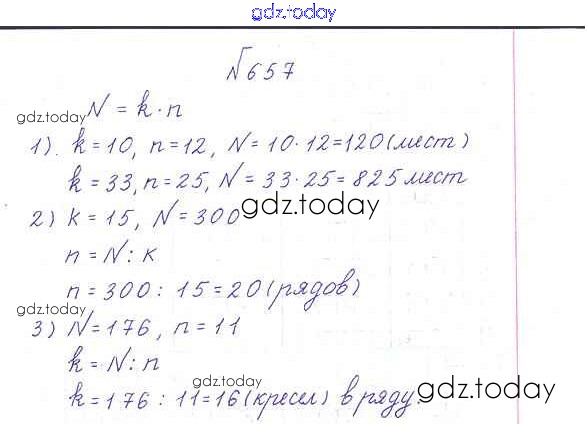 gdz.today
№657
N = k·n
gdz.today
1). k = 10, n = 12, N = 10·12 = 120 (мест)
k = 33, n = 25, N = 33·25 = 825 мест
2) k = 15, N = 300
gdz.today
n = N : k
n = 300 : 15 = 20 (рядов)
gdz.today
3) N = 176, n = 11
k = N : n
gdz.today
k = 176 : 11 = 16 (кресел) в ряду.
gdz.today